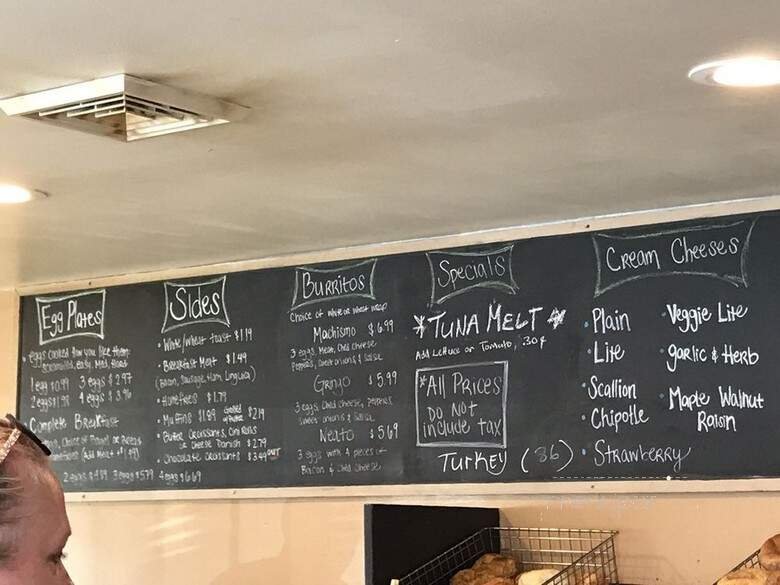 Egg Plates
eggs cooked how you like them:
scrambled, easy, Med, Hard
1 egg $0.99 3 eggs $2.97
2 eggs $1.98 4 eggs $3.96
Complete Breakfast
Choice of
Add Meat
2 eggs $4.89 3 eggs $5.79 4 eggs $6.69
Sides
White/Wheat Toast $1.19
Breakfast Meat $1.99
(Bacon, Sausage, Ham, Linguica)
HomeFries $1.79
Muffins $1.89 Grilled $2.19
Butter Croissants, Cinn Rolls
or Cheese Danish $2.79
Chocolate Croissants $3.49 OUT
Burritos
Choice of white or wheat wrap
Machismo $6.99
3 eggs, Meat, Ched Cheese
Peppers, Sweet onions & Salsa
Gringo $5.99
3 eggs, Ched Cheese, Peppers,
Sweet onions & Salsa
Neato $5.69
3 eggs with 4 pieces of
Bacon & Ched Cheese
Specials
*TUNA MELT*
Add Lettuce or Tomato, 30¢
*All Prices
Do Not
include tax
Turkey (86)
Cream Cheeses
Plain
Lite
Scallion
Chipotle
Strawberry
Veggie Lite
garlic & Herb
Maple Walnut
Raisin